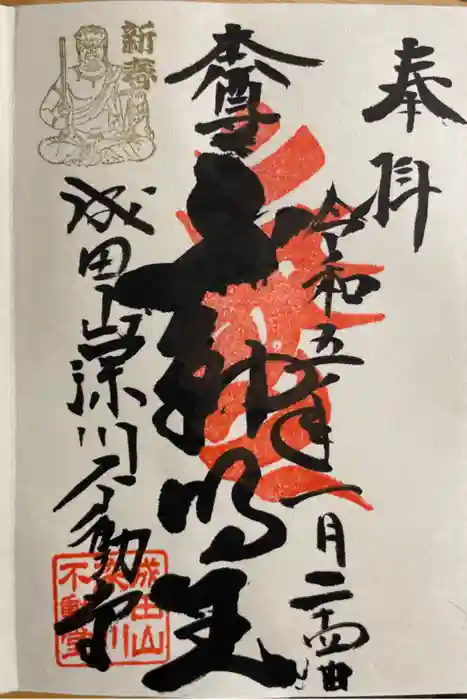 奉拝
令和五年一月二十四日
本尊
不動明王
新春
成田山深川不動堂
成田山
深川
不動堂